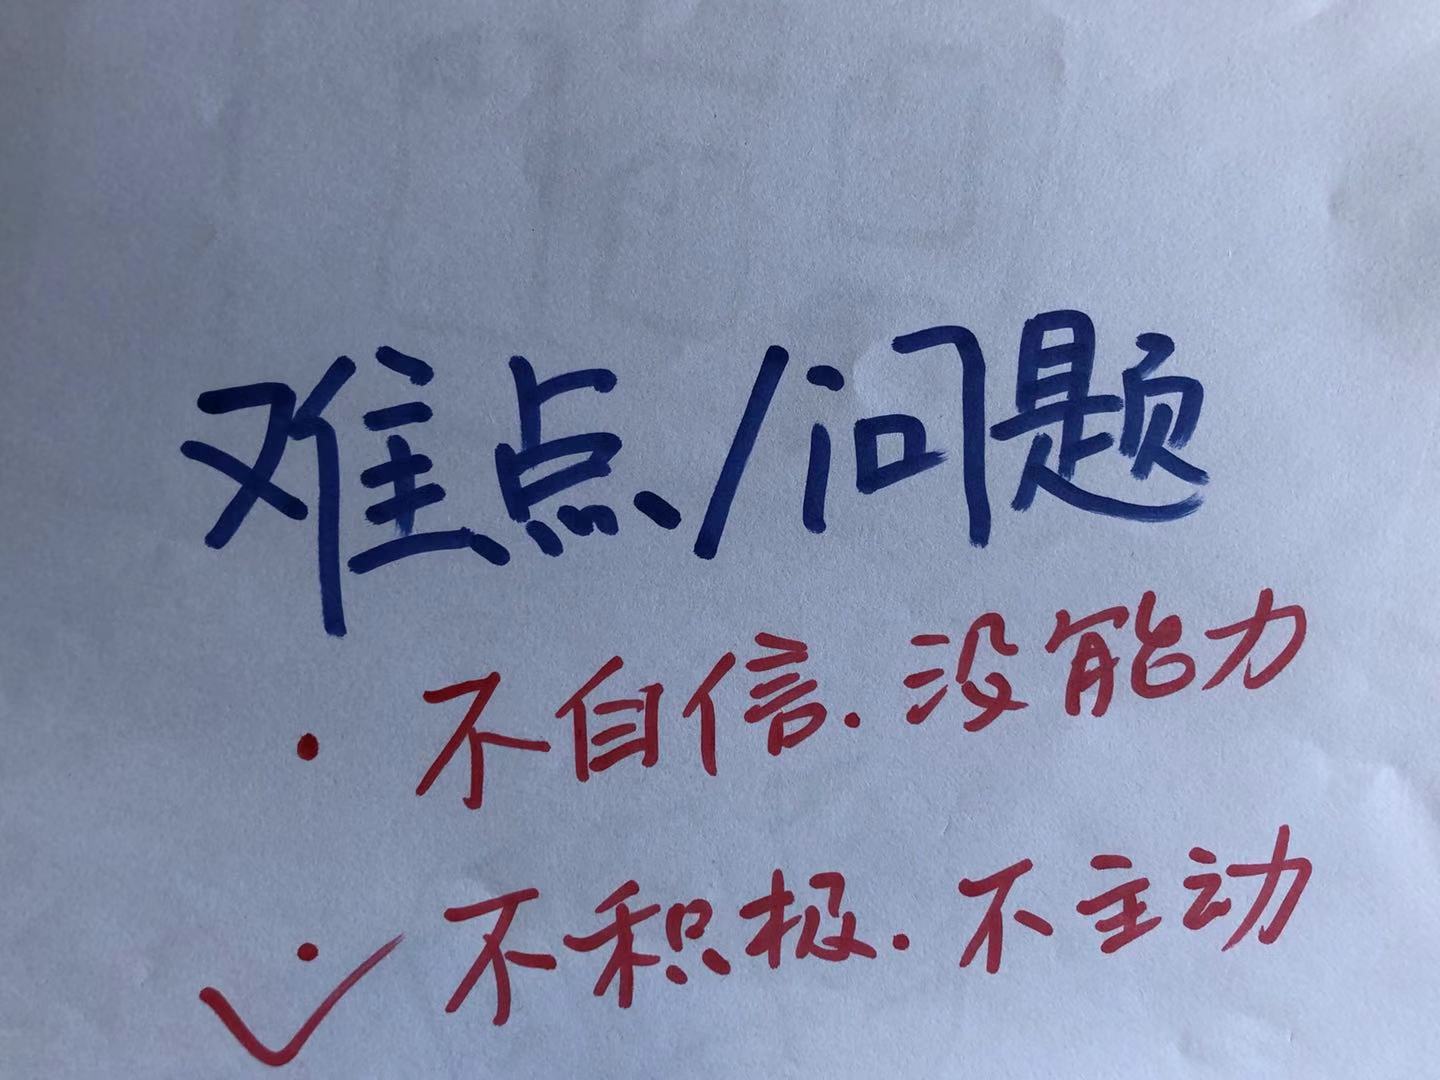 难点/问题
· 不自信.没能力
✓· 不积极.不主动